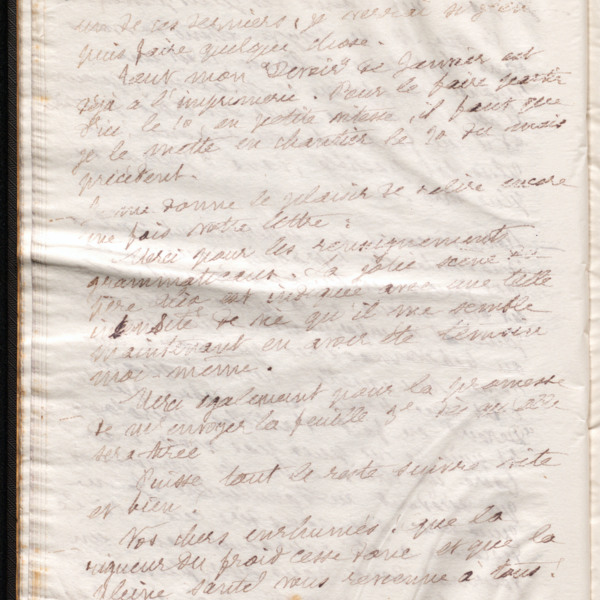 un de ces derniers, je verrai si j'en
puis faire quelque chose.
Tout mon "Devoir" de Janvier est
déjà à l'imprimerie. Pour le faire
d'ici le 10 en petite vitesse, il faut que
je le mette en chantier le 20 du mois
précédent.
Je me donne le plaisir de relire encore
une fois votre lettre :
Merci pour les renseignements
grammaticaux. La jolie scène du
Père est indiquée avec une telle
intensité de vie qu'il me semble
maintenant en avoir été témoin
moi-même.
Merci également pour la promesse
de m'envoyer la feuille 9e dès qu'elle
sera tirée.
Puisse tout le reste suivre vite
et bien.
Vos chers enrhumés, que la
rigueur du froid cesse donc et que la
pleine santé vous revienne à tous!